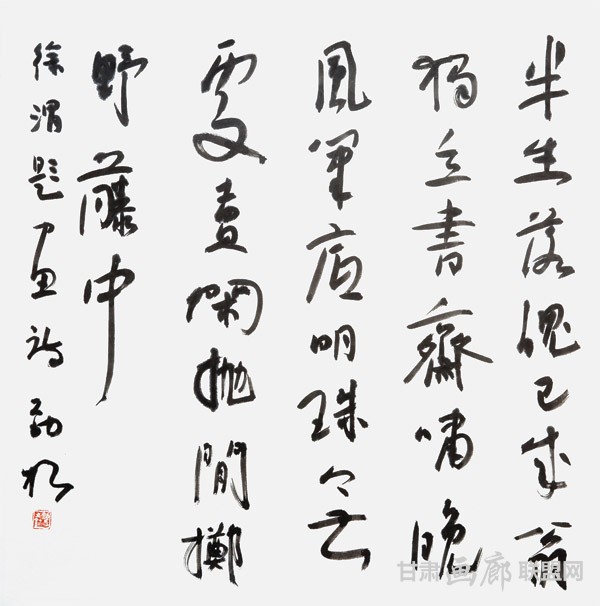 半生落魄已成翁
獨立書齋嘯晚
風筆底明珠無
處賣閑拋閒擲
野藤中
徐渭題畫詩
甘肃画廊联盟网